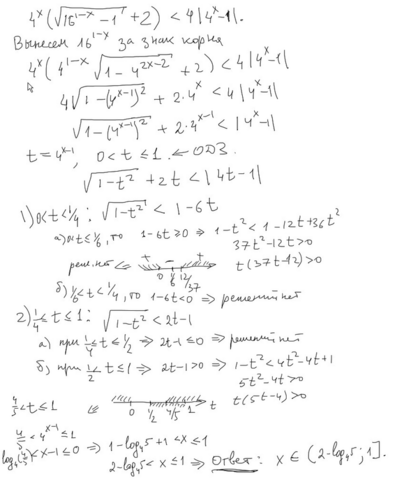 4^x(√(16^(1-x) - 1) + 2) < 4|4^x-1|.
Вынесем 16^(1-x) за знак корня
4^x(4^(1-x) √(1-4^(2x-2)) + 2) < 4|4^x-1|
4√(1-(4^(x-1))²) + 2·4^x < 4|4^x-1|
√(1-(4^(x-1))²) + 2·4^(x-1) < |4^x-1|
t = 4^(x-1), 0<t≤1. ← ОДЗ.
√(1-t²) + 2t < |4t-1|
1) 0<t<1/4: √(1-t²) < 1-6t
а) 0<t≤1/6, то 1-6t≥0 ⇒ 1-t² < 1-12t+36t²
37t²-12t>0
реш. нет ⇐ + - + 0 1/6 12/37 t(37t-12)>0
б) 1/6<t<1/4, то 1-6t<0 ⇒ решений нет
2) 1/4≤t≤1: √(1-t²) < 2t-1
а) при 1/4≤t≤1/2 ⇒ 2t-1≤0 ⇒ решений нет
б) при 1/2<t≤1 ⇒ 2t-1>0 ⇒ 1-t²<4t²-4t+1
5t²-4t>0
4/5<t≤1 ⇐ 0 1/2 4/5 1 t t(5t-4)>0
4/5<4^(x-1)≤1
log₄(4/5)<x-1≤0 ⇒ 1-log₄5+1<x≤1
2-log₄5<x≤1 ⇒ Ответ: x∈(2-log₄5; 1].